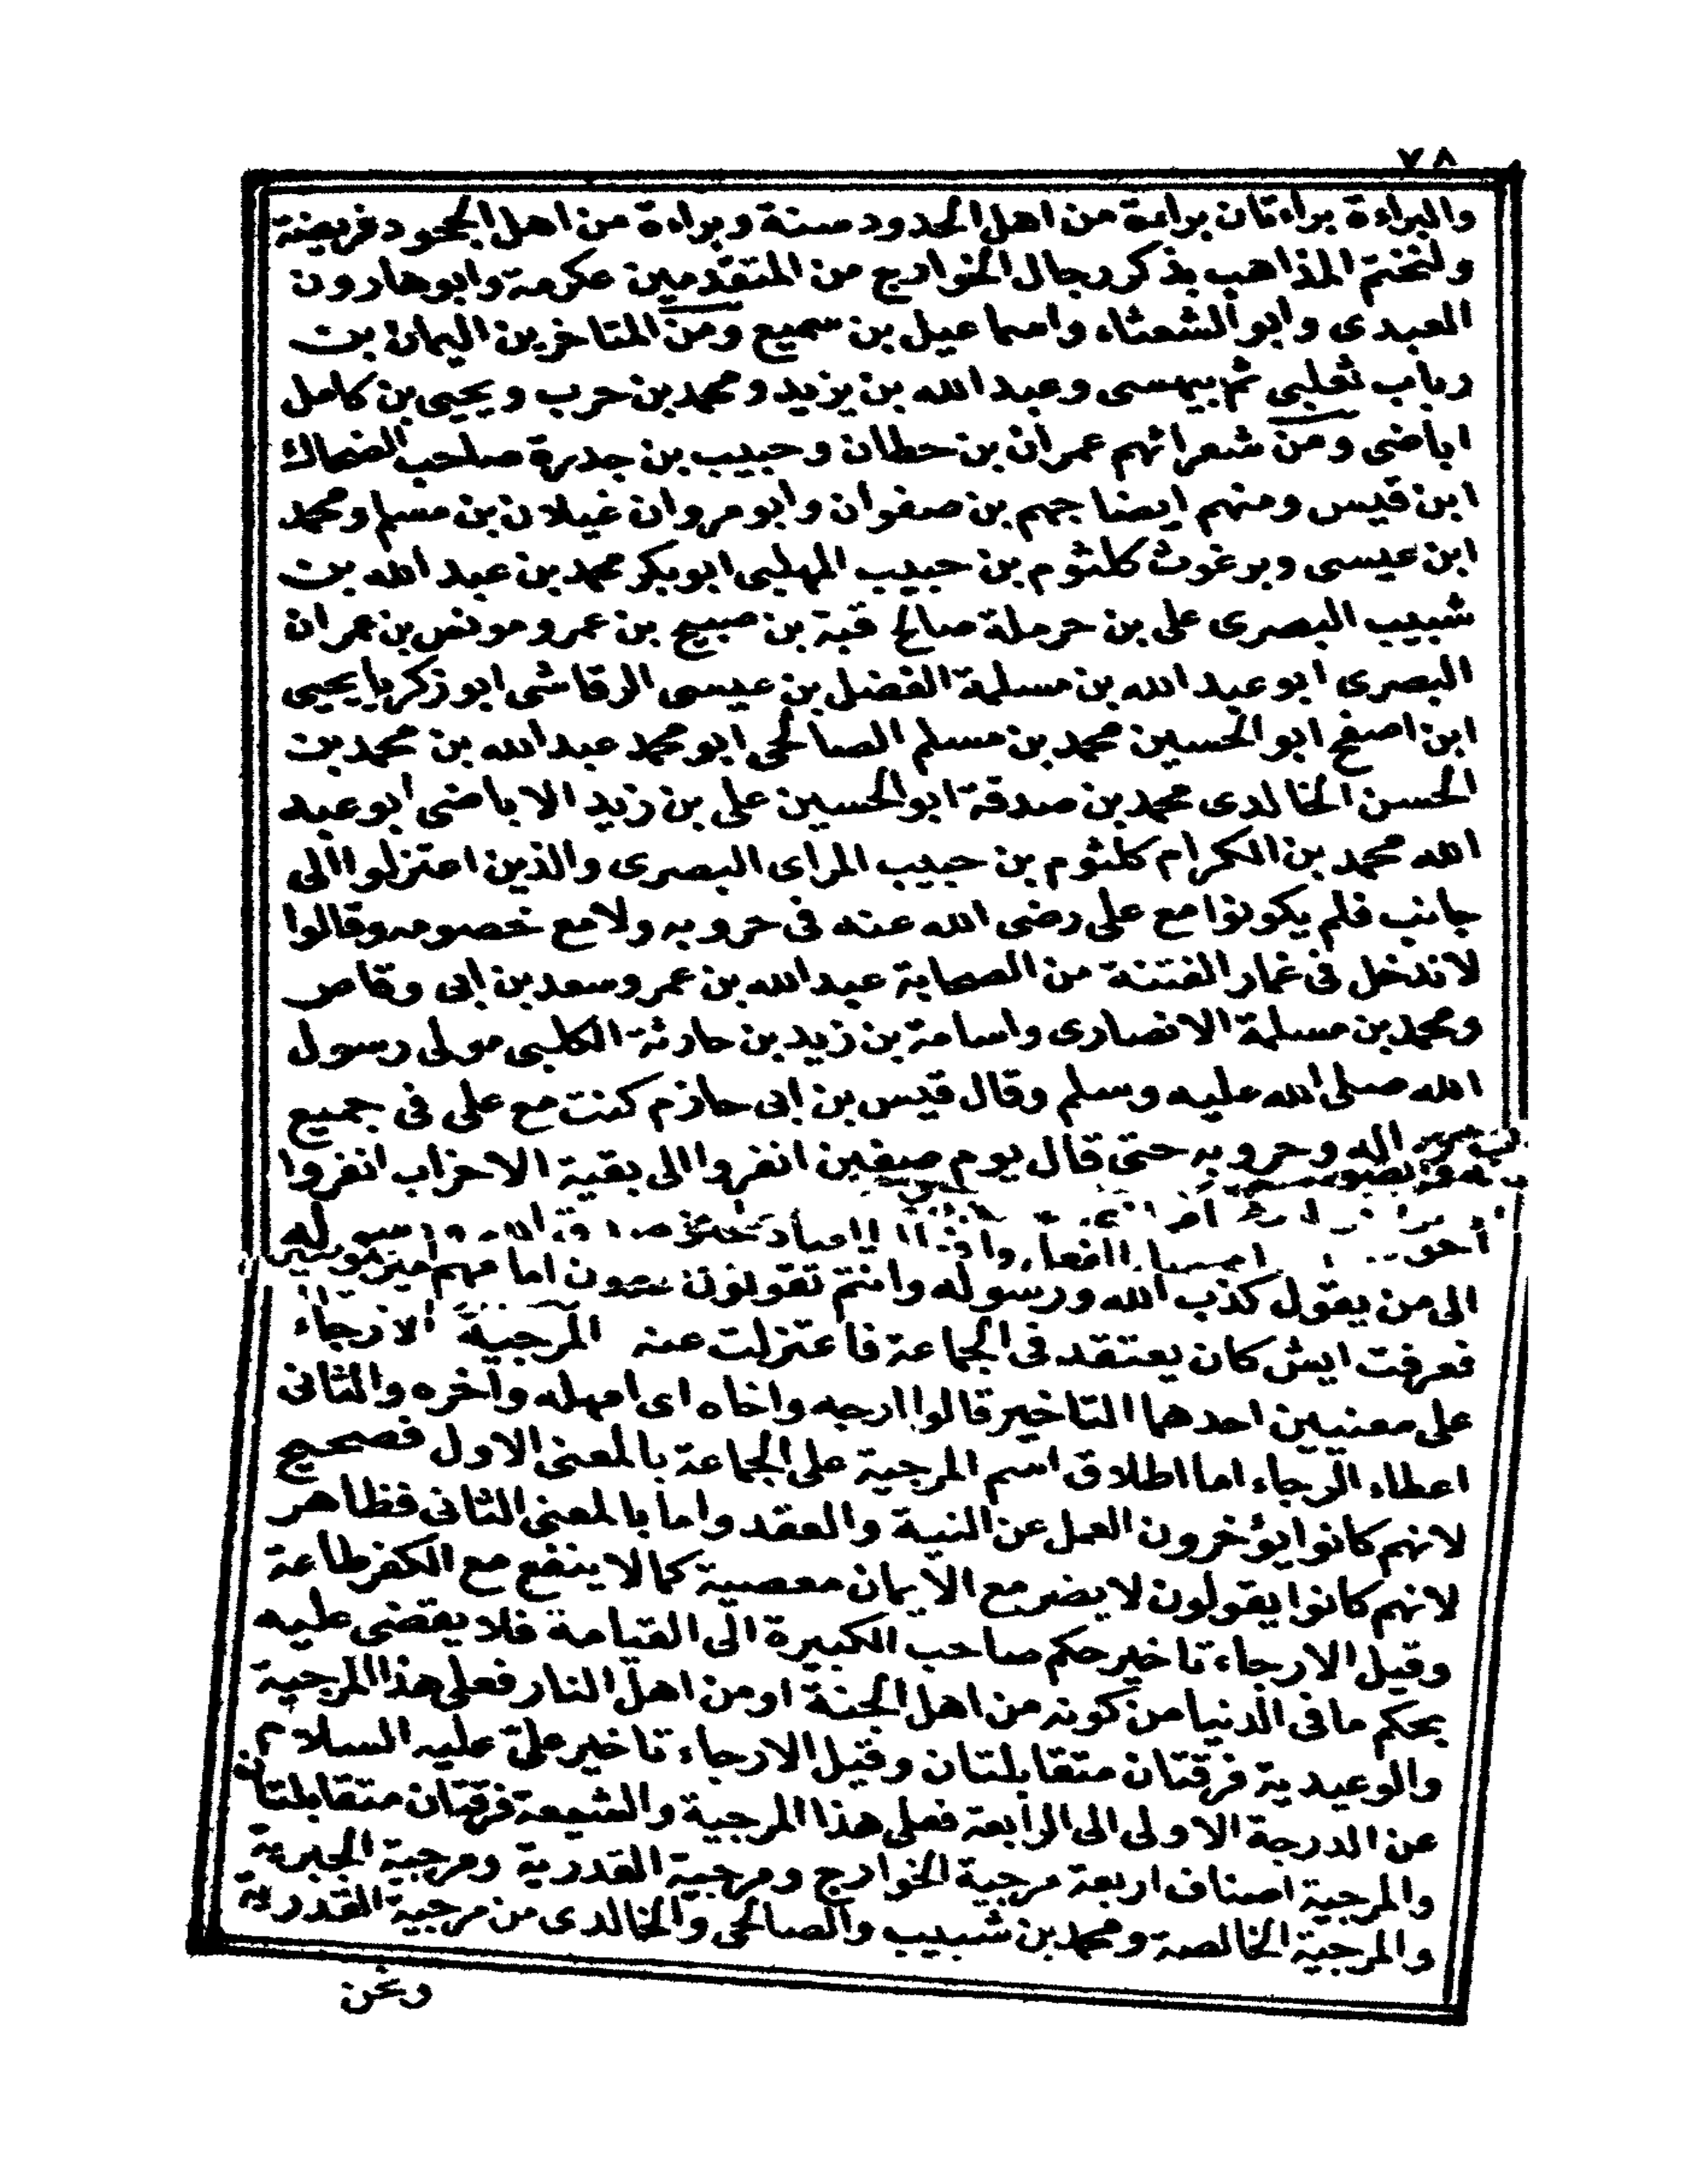 ٧٨
والبراءة براءتان براءة من اهل الحدود سنة وبراءة من اهل الجحود فريضة
ولنختم المذاهب بذكر رجال الخوارج من المتقدمين عكرمة وابو هارون
العبدى وابو الشعثاء واسماعيل بن سميع ومن المتاخرين اليمان بن
رباب ثعلبى ثم بيهسى وعبد الله بن يزيد ومحمد بن حرب ويحيى بن كامل
اباضى ومن شعرائهم عمران بن حطان وحبيب بن جدرة صاحب الضحاك
ابن قيس ومنهم ايضا جهم بن صفوان وابو مروان غيلان بن مسلم ومحمد
ابن عيسى وبرغوث كلثوم بن حبيب المهلبى ابو بكر محمد بن عبد الله بن
شبيب البصرى على بن حرملة صالح قبة بن صبيح بن عمرو مونس بن عمران
البصرى ابو عبد الله بن مسلمة الفضل بن عيسى الرقاشى ابو زكريا يحيى
ابن اصفح ابو الحسين محمد بن مسلم الصالحى ابو محمد عبد الله بن محمد بن
الحسن الخالدى محمد بن صدقة ابو الحسين على بن زيد الاباضى ابو عبد
الله محمد بن الكرام كلثوم بن حبيب المراى البصرى والذين اعتزلوا الى
جانب فلم يكونوا مع على رضى الله عنه فى حروبه ولا مع خصومه وقالوا
لا ندخل فى غمار الفتنة من الصحابة عبد الله بن عمر وسعد بن ابى وقاص
ومحمد بن مسلمة الانصارى واسامة بن زيد بن حارثة الكلبى مولى رسول
الله صلى الله عليه وسلم وقال قيس بن ابى حازم كنت مع على فى جميع
وحروبه حتى قال يوم صفين انفروا الى بقية الاحزاب انفروا
الى من يقول كذب الله ورسوله وانتم تقولون
فعرفت ايش كان يعتقد فى الجماعة فاعتزلت عنه المرجية الارجاء
على معنيين احدهما التاخير قالوا ارجه واخاه اى امهله وآخره والثانى
اعطاء الرجاء اما اطلاق اسم المرجية على الجماعة بالمعنى الاول فصحيح
لانهم كانوا يؤخرون العمل عن النية والعقد واما بالمعنى الثانى فظاهر
لانهم كانوا يقولون لا يضر مع الايمان معصية كما لا ينفع مع الكفر طاعة
وقيل الارجاء تاخير حكم صاحب الكبيرة الى القيامة فلا يقضى عليه
بحكم ما فى الدنيا من كونه من اهل الجنة او من اهل النار فعلى هذا المرجية
والوعيدية فرقتان متقابلتان وقيل الارجاء تاخير على عليه السلام
عن الدرجة الاولى الى الرابعة فعلى هذا المرجية والشيعة فرقتان متقابلتان
والمرجية اصناف اربعة مرجية الخوارج ومرجية القدرية ومرجية الجبرية
والمرجية الخالصة ومحمد بن شبيب والصالحى والخالدى من مرجية القدرية
ونحن